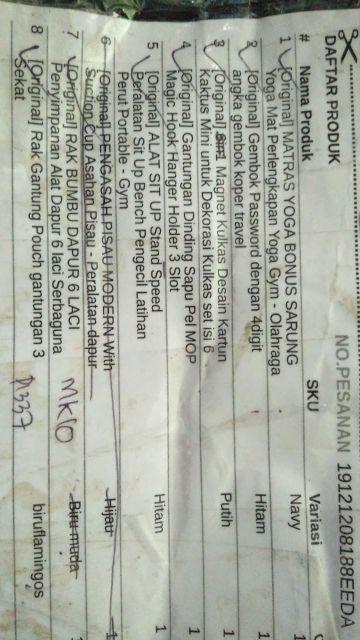 DAFTAR PRODUK
NO.PESANAN 19121208188EEDA
# Nama Produk SKU Variasi
1 [Original] MATRAS YOGA BONUS SARUNG Navy
Yoga Mat Perlengkapan Yoga Gym - Olahraga
2 [Original] Gembok Password dengan 4digit Hitam 1
angka gembok koper travel
3 [Original] Magnet Kulkas Desain Kartun Putih 1
Kaktus Mini untuk Dekorasi Kulkas set isi 6
4 [Original] Gantungan Dinding Sapu Pel MOP 1
Magic Hook Hanger Holder 3 Slot
5 [Original] ALAT SIT UP Stand Speed Hitam 1
Peralatan Sit Up Bench Pengecil Latihan
Perut Portable - Gym
6 [Original] PENGASAH PISAU MODERN With Hijau 1
Suction Cup Asahan Pisau - Peralatan dapur
7 [Original] RAK BUMBU DAPUR 6 LACI MK10 Biru muda
Penyimpanan Alat Dapur 6 laci Serbaguna
8 [Original] Rak Gantung Pouch gantungan 3 biruflamingos
Sekat